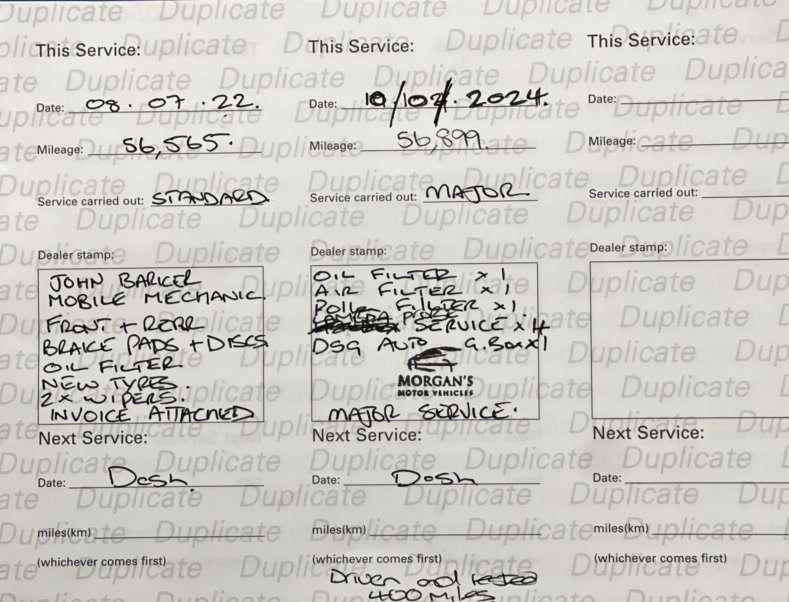 This Service:
Date: 08.07.22.
Mileage: 56,565.
Service carried out: STANDARD
Dealer stamp:
JOHN BARKER
MOBILE MECHANIC
FRONT + REAR
BRAKE PADS + DISCS
OIL FILTER
NEW TYRES.
2x WIPERS.
INVOICE ATTACHED
Next Service:
Date: Dash
miles(km)
(whichever comes first)
This Service:
Date: 10/02/.2024.
Mileage: 56,899.
Service carried out: MAJOR
Dealer stamp:
OIL FILTER x 1
AIR FILTER x 1
FILTER x 1
SERVICE x 4
DSG AUTO G.Box x1
MORGAN'S
MOTOR VEHICLES
MAJOR SERVICE.
Next Service:
Date: Dash
miles(km)
(whichever comes first)
Driven and tested
400 MILES
This Service:
Date:
Mileage:
Service carried out:
Dealer stamp:
Next Service:
Date:
miles(km)
(whichever comes first)
Duplicate